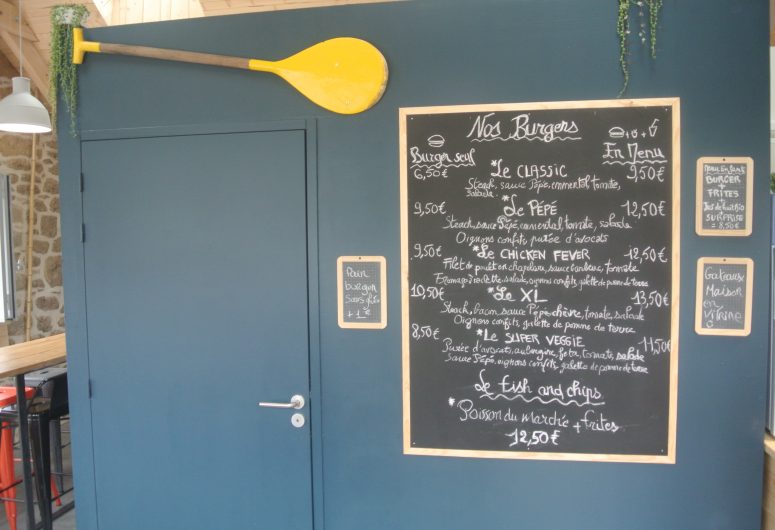 Nos Burgers
Burger seul
En Menu
6,50€ *Le CLASSIC 9,50€
Steack, sauce Pépé, emmental, tomate,
salade.
9,50€ *Le PÉPÉ 12,50€
Steack, sauce Pépé, emmental, tomate, salade
Oignons confits, purée d'avocats
9,50€ *Le CHICKEN FEVER 12,50€
Filet de poulet en chapelure, sauce barbecue, tomate
Fromage à raclette, salade, oignons confits, galette de pomme de terre
10,50€ *Le XL 13,50€
Steack, bacon, sauce Pépé, chèvre, tomate, salade
Oignons confits, galette de pomme de terre
8,50€ *Le SUPER VEGGIE 11,50€
Purée d'avocats, aubergine, feta, tomate, salade
Sauce Pépé, oignons confits, galette de pomme de terre
Le fish and chips
*Poisson du marché + frites
12,50€
Pain
burger
sans gluten
+1€
MENU ENFANT
BURGER
+
FRITES
+
Jus de fruit Bio
SURPRISE
= 8,50€
Gateaux
Maison
en
vitrine